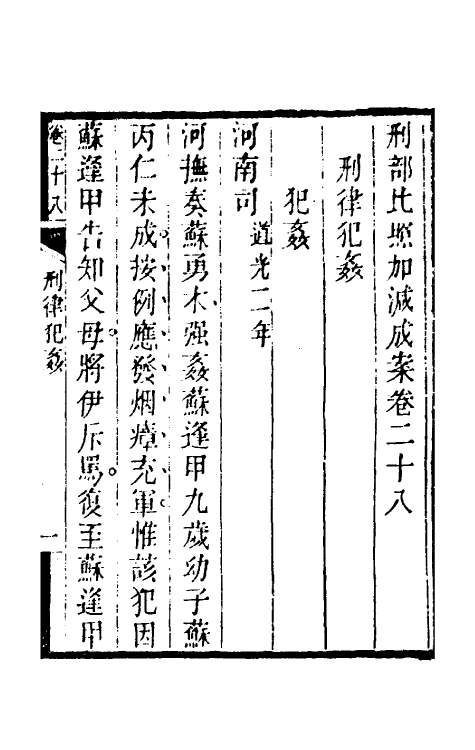 刑部比照加減成案卷二十八
刑律犯姦
犯姦
河南司 道光二年
河撫奏蘇勇木强姦蘇逢甲九歲幼子蘇
丙仁未成按例應發烟瘴充軍惟該犯因
蘇逢甲告知父母將伊斥罵復至蘇逢甲
卷二十八 刑律犯姦 一